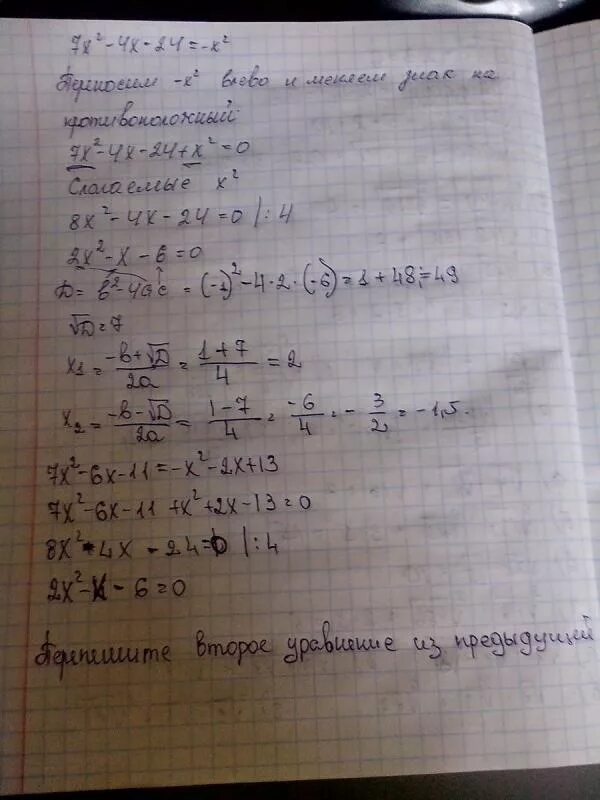 7x² - 4x - 24 = -x²
Переносим -x² влево и меняем знак на
противоположный:
7x² - 4x - 24 + x² = 0
Слагаемые x²
8x² - 4x - 24 = 0 |: 4
2x² - x - 6 = 0
D = b² - 4ac = (-1)² - 4·2·(-6) = 1 + 48 = 49
√D = 7
x₁ = (-b + √D)/2a = (1 + 7)/4 = 2
x₂ = (-b - √D)/2a = (1 - 7)/4 = -6/4 = -3/2 = -1,5.
7x² - 6x - 11 = -x² - 2x + 13
7x² - 6x - 11 + x² + 2x - 13 = 0
8x² - 4x - 24 = 0 |: 4
2x² - x - 6 = 0
Перепишите второе уравнение из предыдущей